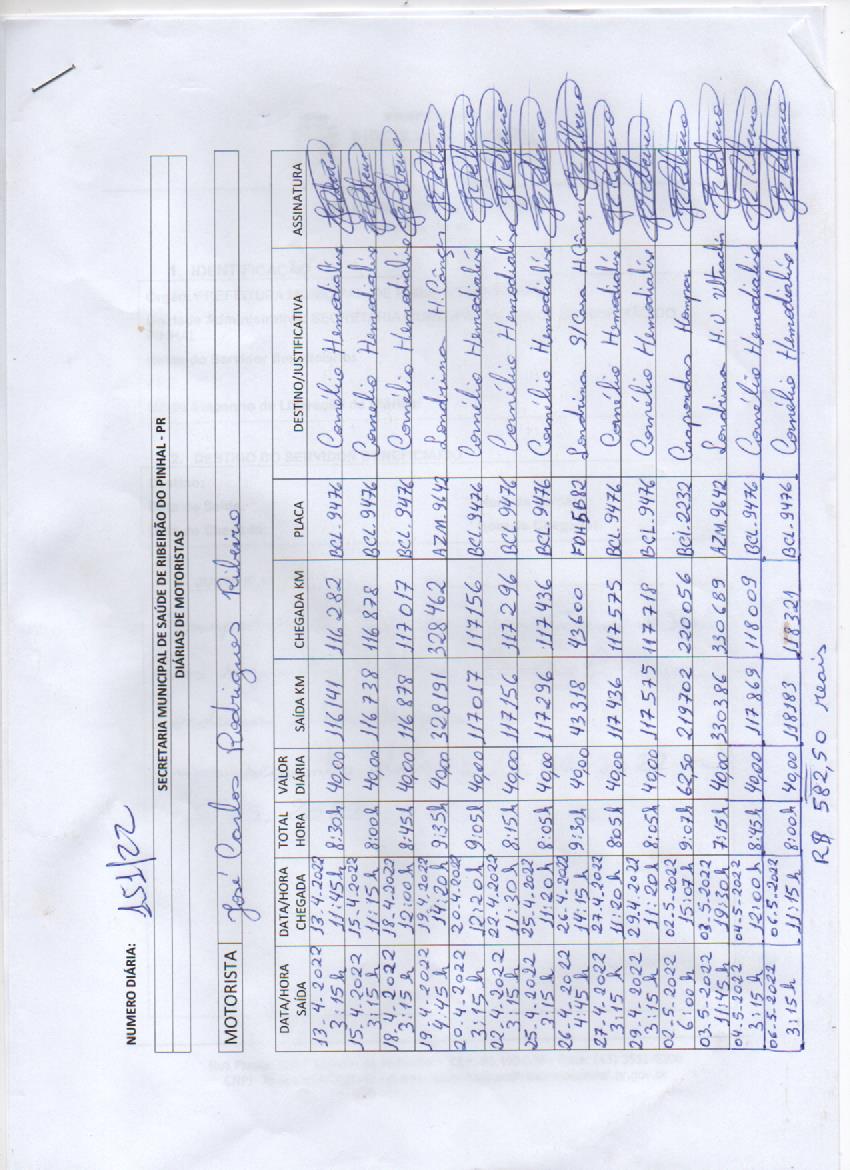 NUMERO DIÁRIA: 151/22
SECRETARIA MUNICIPAL DE SAÚDE DE RIBEIRÃO DO PINHAL - PR
DIÁRIAS DE MOTORISTAS
MOTORISTA José Carlos Rodrigues Ribeiro
DATA/HORA SAÍDA DATA/HORA CHEGADA TOTAL HORA VALOR DIÁRIA SAÍDA KM CHEGADA KM PLACA DESTINO/JUSTIFICATIVA ASSINATURA
13.4.2022 3:15h 13.4.2022 11:45h 8:30h 40,00 116141 116282 BCL-9476 Cornélio Hemodiálise
15.4.2022 3:15h 15.4.2022 11:15h 8:00h 40,00 116738 116878 BCL-9476 Cornélio Hemodiálise
18.4.2022 3:15h 18.4.2022 12:00h 8:45h 40,00 116878 117017 BCL-9476 Cornélio Hemodiálise
19.4.2022 4:45h 19.4.2022 14:20h 9:35h 40,00 328191 328462 AZM-9642 Londrina H. Câncer
20.4.2022 3:15h 20.4.2022 12:20h 9:05h 40,00 117017 117156 BCL-9476 Cornélio Hemodiálise
22.4.2022 3:15h 22.4.2022 11:30h 8:15h 40,00 117156 117296 BCL-9476 Cornélio Hemodiálise
25.4.2022 3:15h 25.4.2022 11:20h 8:05h 40,00 117296 117436 BCL-9476 Cornélio Hemodiálise
26.4.2022 4:45h 26.4.2022 14:15h 9:30h 40,00 43318 43600 FDH5B82 Londrina S/Casa H. Câncer
27.4.2022 3:15h 27.4.2022 11:20h 8:05h 40,00 117436 117575 BCL-9476 Cornélio Hemodiálise
29.4.2022 3:15h 29.4.2022 11:20h 8:05h 40,00 117575 117718 BCL-9476 Cornélio Hemodiálise
02.5.2022 6:00h 02.5.2022 15:07h 9:07h 62,50 219702 220056 BCI-2232
03.5.2022 11:45h 03.5.2022 19:30h 7:15h 40,00 330386 330689 AZM-9642 Londrina H.U.
04.5.2022 3:15h 04.5.2022 12:00h 8:45h 40,00 117869 118009 BCL-9476 Cornélio Hemodiálise
06.5.2022 3:15h 06.5.2022 11:15h 8:00h 40,00 118183 118321 BCL-9476 Cornélio Hemodiálise
R$ 582,50 reais